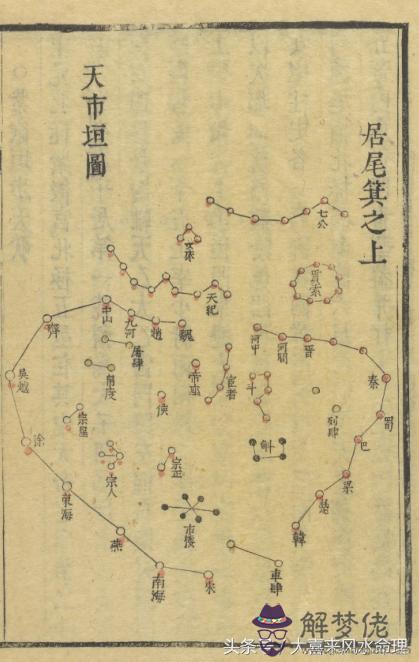 居尾箕之上
天市垣圖
七公
貫索
女床
天紀
中山
九河
趙
魏
齊
屠肆
帛度
河中
河間
晋
秦
蜀
巴
梁
楚
韓
吳越
徐
東海
燕
南海
宋
帝座
宦者
斗
斛
列肆
侯
宗星
宗人
宗正
市楼
車肆
解梦佬
头条 @大喜来风水命理